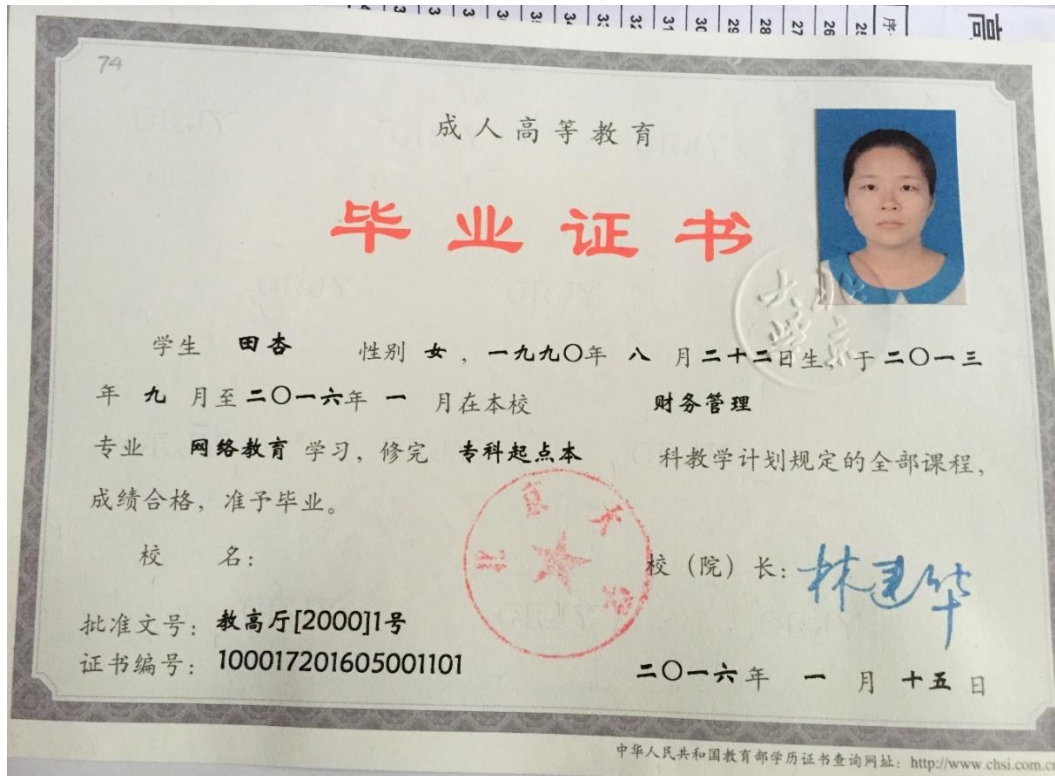 序
25
26
27
28
29
30
31
32
高
74
成人高等教育
毕业证书
学生 田杏 性别 女，一九九〇年 八 月二十二日生，于二〇一三
年 九 月至二〇一六年 一 月在本校 财务管理
专业 网络教育 学习，修完 专科起点本 科教学计划规定的全部课程，
成绩合格，准予毕业。
校 名： 校（院）长：林建华
北京大学
批准文号：教高厅[2000]1号
证书编号：100017201605001101
二〇一六年 一 月 十五 日
中华人民共和国教育部学历证书查询网址：http://www.chsi.com.cn